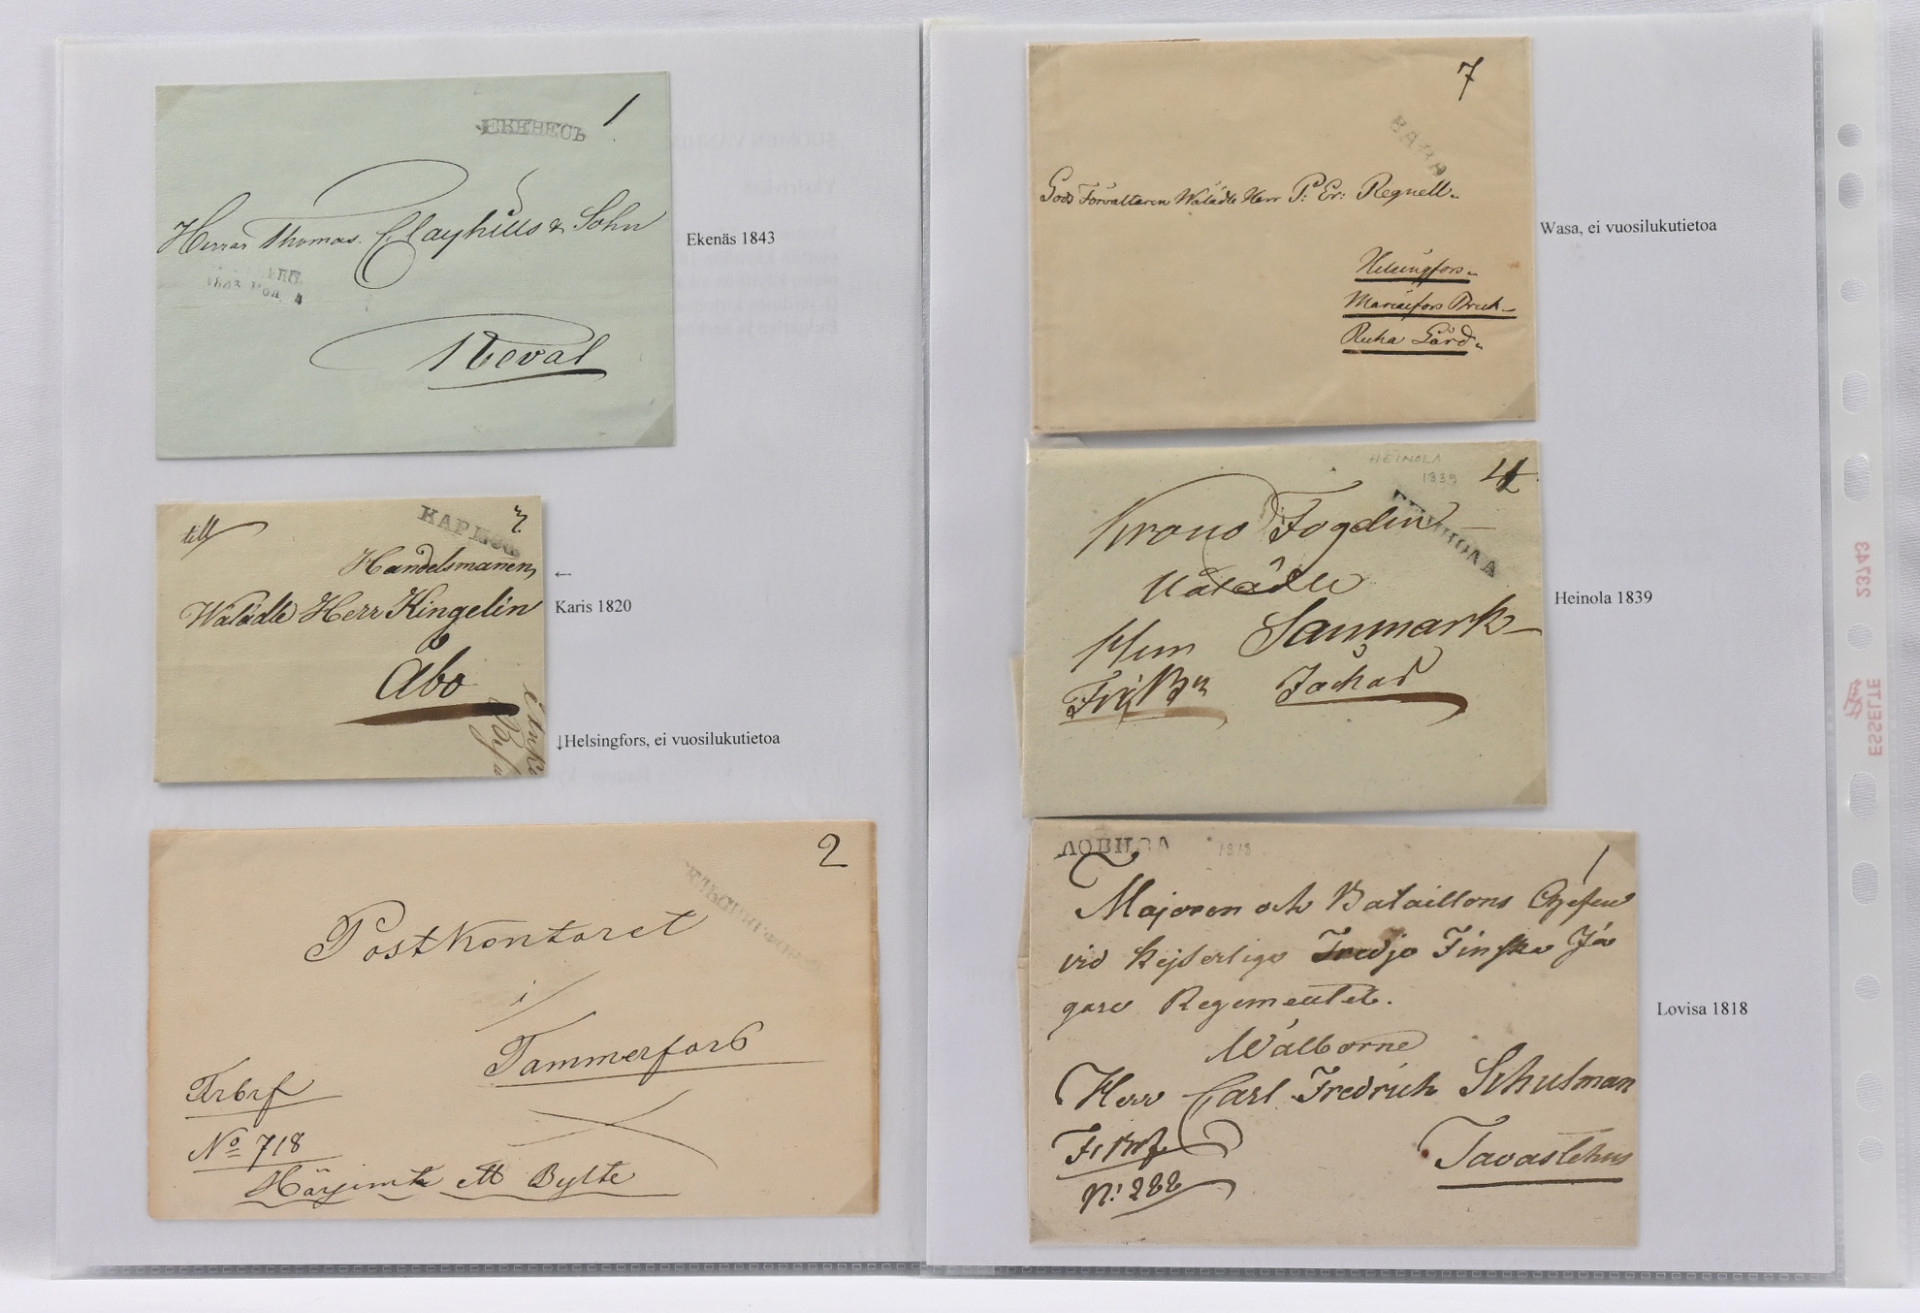 1
ЕКЕНЕСЪ
Herrar Thomas Clayhills & Sohn
Reval
Ekenäs 1843
till
3.
Handelsmanen,
Wälädle Herr Kingelin
Åbo
←
Karis 1820
↓Helsingfors, ei vuosilukutietoa
2
Postkontoret
i
Tammerfors
Frbrf
No 718
Härjimte ett Bylte
7
ВАЗА
Gods Förvaltaren Wälädle Herr P: Er: Regnell.
Helsingfors
Mariefors Bruk
Ruha Gård.
Wasa, ei vuosilukutietoa
HEINOLA
1839
4
Krono Fogden
Wälädle
Herr Sanmark
Heinola 1839
1818
1
Majoren och Bataillons Chefen
vid Kejserliga Tredje Finska Jä
gare Regementet.
Wälborne
Herr Carl Fredrich Schulman
Frbrf
N: 288
Tavastehus
Lovisa 1818
ESSELTE
23743